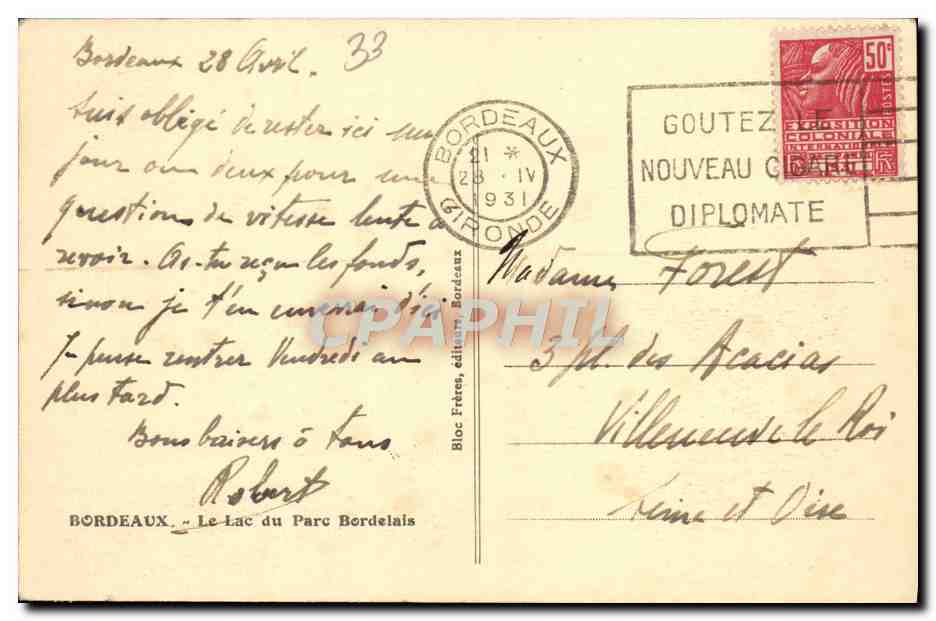 Bordeaux 28 Avril.
33
Suis obligé de rester ici un
jour ou deux pour une
question de vitesse lente à
revoir. As-tu reçu les fonds,
sinon je t'en enverrai d'ici
Je pense rentrer Vendredi au
plus tard.
Bons baisers à tous
Robert
BORDEAUX. - Le Lac du Parc Bordelais
Bloc Frères, éditeurs, Bordeaux
BORDEAUX
21 *
28 · IV
1931
GIRONDE
GOUTEZ LE
NOUVEAU CIGARE
DIPLOMATE
50c
POSTES
EXPOSITION
COLONIALE
INTERNATIONALE
RF
Madame Forest
3 pl. des Acacias
Villeneuve le Roi
Seine et Oise
CPAPHIL